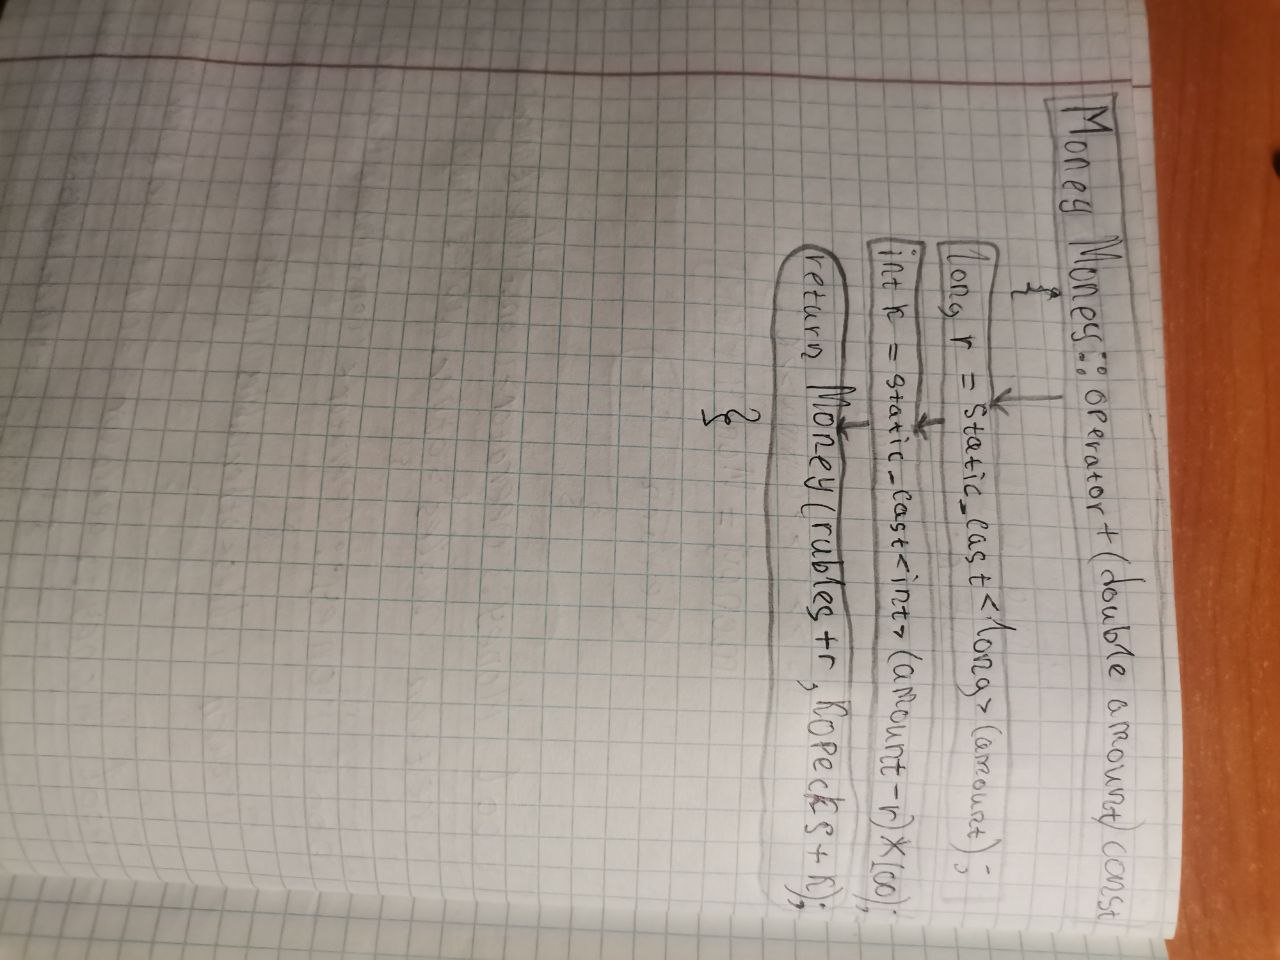 Money Money::operator+(double amount) const
{
long r = static_cast<long>(amount);
int k = static_cast<int>(amount-r)*100);
return Money(rubles+r, kopecks+k);
}